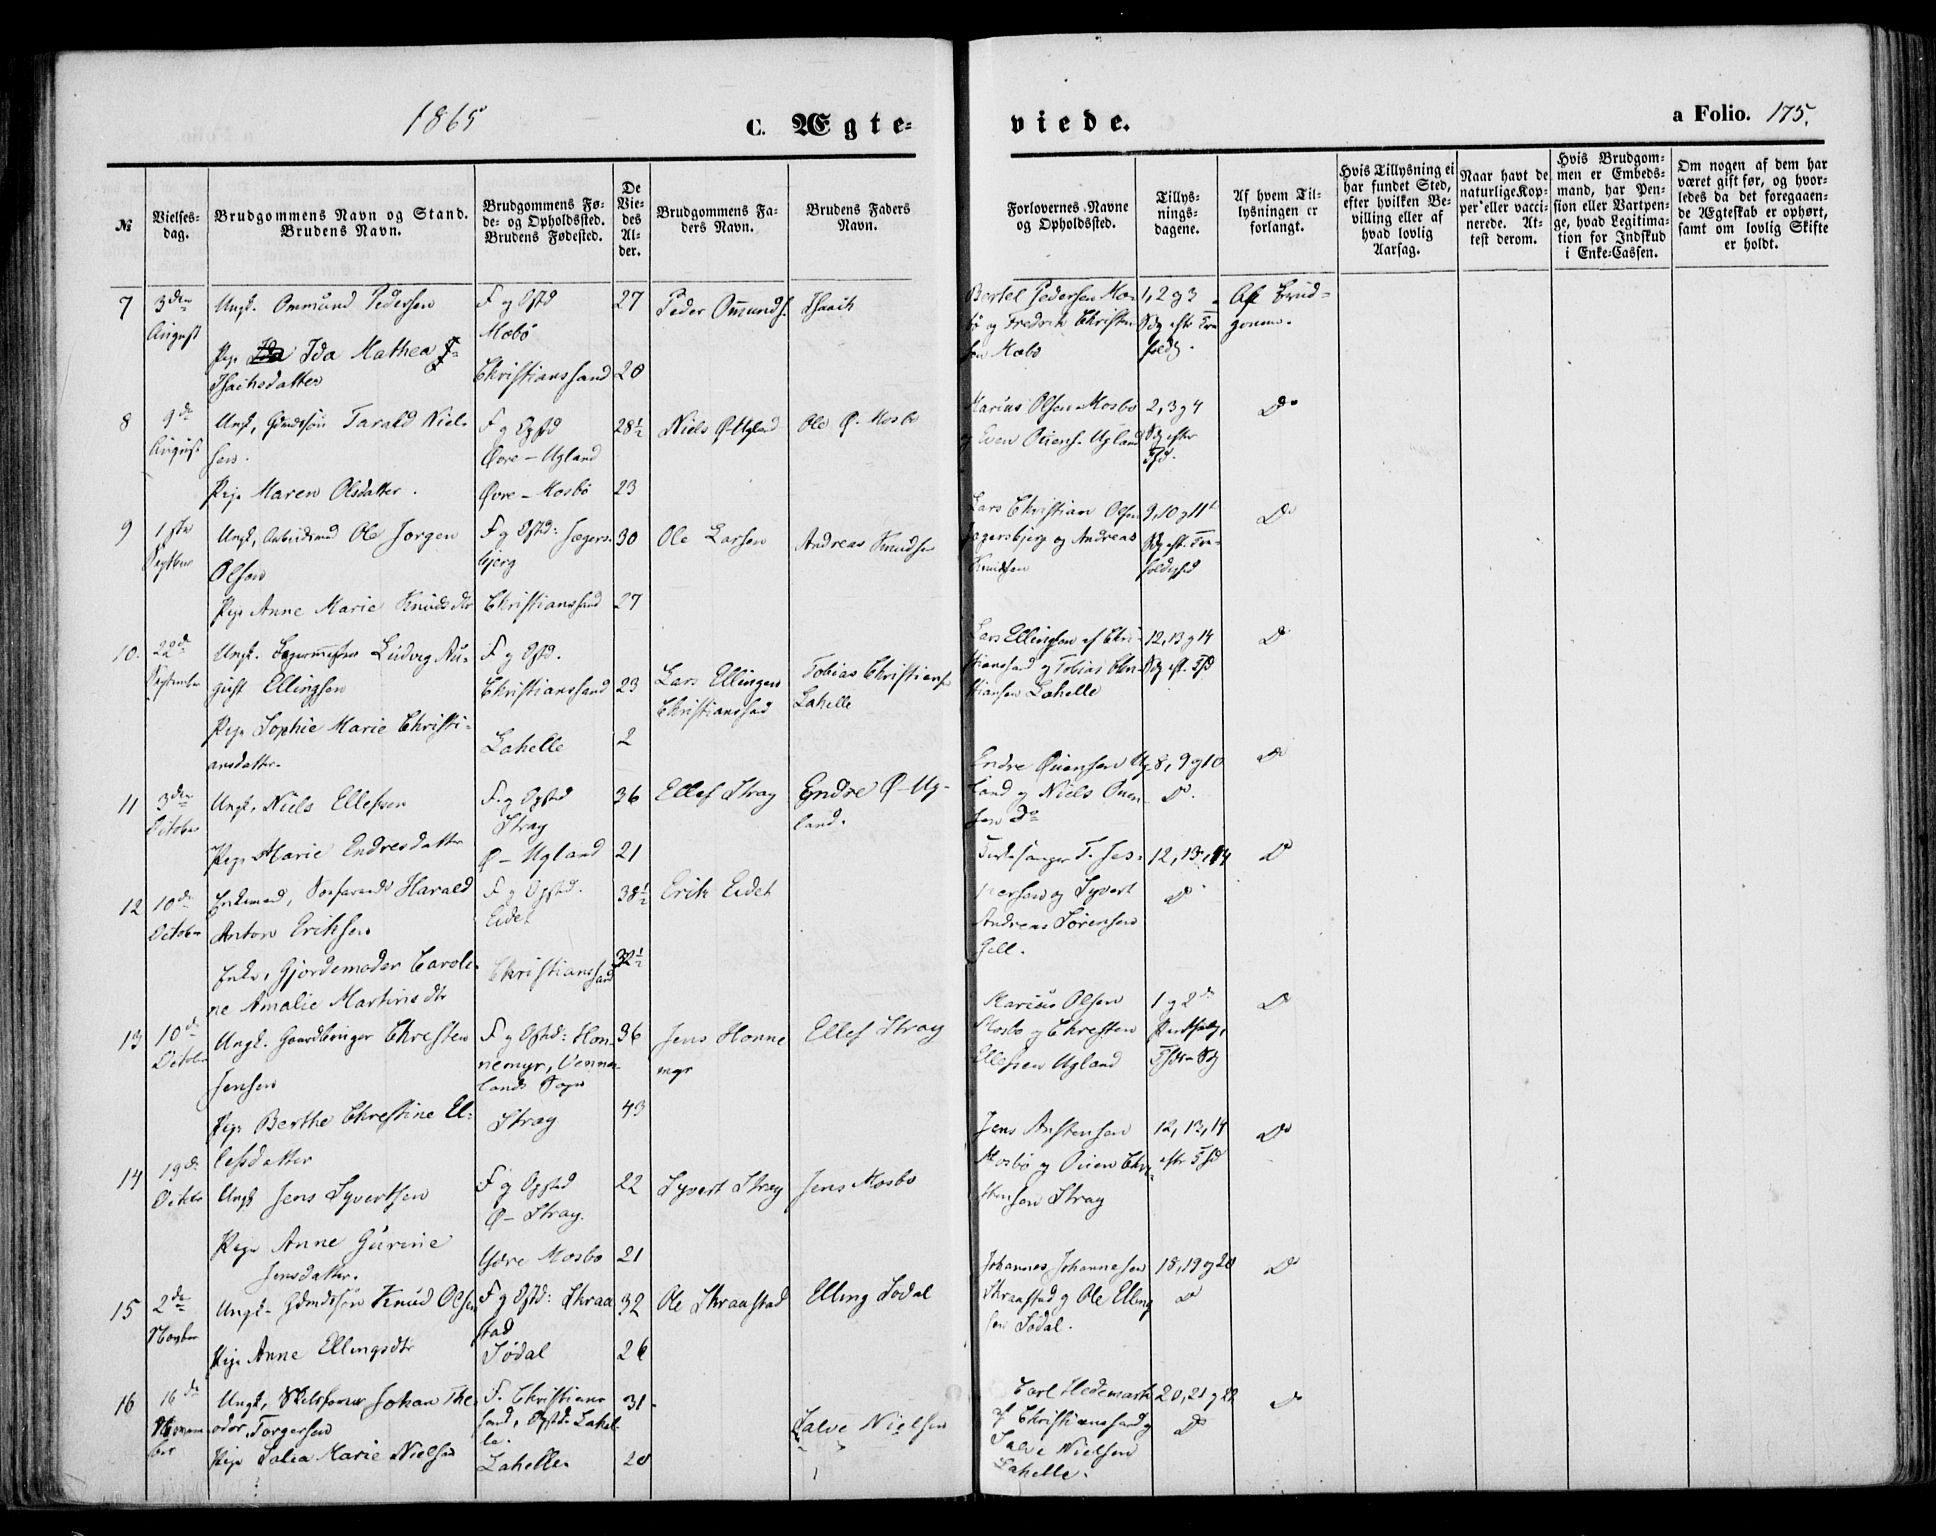 1865
C. Ægte-
viede.
a Folio. 175.
№
Vielses-
dag.
Brudgommens Navn og Stand.
Brudens Navn.
Brudgommens Fø-
de- og Opholdssted.
Brudens Fødested.
De
Vie-
des
Al-
der.
Brudgommens Fa-
ders Navn.
Brudens Faders
Navn.
Forlovernes Navne
og Opholdssted.
Tillys-
nings-
dagene.
Af hvem Til-
lysningen er
forlangt.
Hvis Tillysning ei
har fundet Sted,
efter hvilken Be-
villing eller af
hvad lovlig
Aarsag.
Naar havt de
naturlige Kop-
per eller vacci-
nerede. At-
test derom.
Hvis Brudgom-
men er Embeds-
mand, har Pen-
sion eller Vartpen-
ge, hvad Legitima-
tion for Indskud
i Enke-Cassen.
Om nogen af dem har
været gift før, og hvor-
ledes da det foregaaen-
de Ægteskab er ophørt,
samt om lovlig Skifte
er holdt.
7
3den
August
Ungk. Ommund Pedersen
Pige Ida Mathea
Isachsdatter
F og Opstd
Mæbø
Christianssand
27
20
Peder Omunds.
Isaach
Bertel Pedersen Mæ-
bø og Fredrik Christen-
sen Mæbø
1, 2 og 3
Sdg eftr Tre
foldg.
Af Brud-
gommen.
8
9de
August
Ungk, Gaardssøn Tarald Niel-
sen.
Pige Maren Olsdatter.
F og Opstd
Øvre-Ugland
Øvre-Mosbø
28½
23
Niels Ø Ugland
Ole Ø. Mosbø
Marius Olsen Mosbø
og Even Ouens. Ugland
2, 3 og 4
Sdg efter
Tfd.
Do
9
1ste
Septbr
Ungk, Arbeidsmd Ole Jørgen
Olsen
Pige Anne Marie Knudsdtr
F og Opstd: Jægers-
bjerg
Christianssand
30
27
Ole Larsen
Andreas Knudsen
Lars Christian Olsen
Jægersbjerg og Andreas
Knudsen
9, 10 og 11te
Sdg eft. Tre-
foldighed
Do
10.
22de
September
Ungk. Ludvig Au-
gust Ellingsen
Pige Sophie Marie Christi-
ansdatter.
F og Opstd.
Christianssand
Lahelle
23
2
Lars Ellingsen
Christianssand
Tobias Christians.
Lahelle
Lars Ellingsen af Chri-
stianssand og Tobias Chri-
stiansen Lahelle
12, 13 og 14
Sdg eft. Tfd
Do
11
3den
October
Ungk, Niels Ellefsen
Pige Marie Endresdatter
F. og Opstd
Stray
Ø-Ugland
36
21
Ellef Stray
Endre Ø-Ug-
land.
Endre Ouensen Ug-
land og Niels Ouen-
sen Do
8, 9 og 10
Do.
Do
12
10de
October
Enkemand, Søfarende Harald
Anton Eriksen
Enke, Gjordemoder Caroli-
ne Amalie Martinsdtr
F. og Opstd.
Eidet
Christianssand
38½
32½
Erik Eidet
Kirkesanger T. Jes-
persen og Syvert
Andreas Sørensen
12, 13, 14
Do
Do
13
10de
October
Ungk. Gaardbruger Chresten
Jensen
Pige Berthe Chrestine El-
lefsdatter
F og Opstd: Hon-
nemyr, Venne-
lands Sogn
Stray
36
43
Jens Honne
myr
Ellef Stray
Marius Olsen
Mosbø og Chresten
Ellefsen Ugland
1 og 2de
Do
14
19de
October
Ungk Jens Syvertsen
Pige Anne Gurine
Jensdatter.
F og Opstd
Ø-Stray.
Ydre Mosbø
22
21
Syvert Stray
Jens Mosbø
Jens Anstensen
Mosbø og Ouen Chri-
stensen Stray
12, 13, 14
eftr Tfd
Do
15
2den
Novbr
Ungk- Gaardssøn Knud Olsen
Pige Anne Ellingsdtr
F og Opstd: Straa
stad
Sødal
32
26
Ole Straastad
Elling Sødal
Johannes Johannesen
Straastad og Ole Elling
sen Sødal.
18, 19 og 20
Do
Do
16
16de
Novem
ber
Ungk, Johan The
odor Torgersen
Pige Marie Nielsen
F. Christians
sand, Opstd Lahel-
le.
Lahelle
31
20
Salve Nielsen
Carl Hedemark
af Christianssand og
Salve Nielsen
Lahelle.
20, 21 og 22
Do
Do